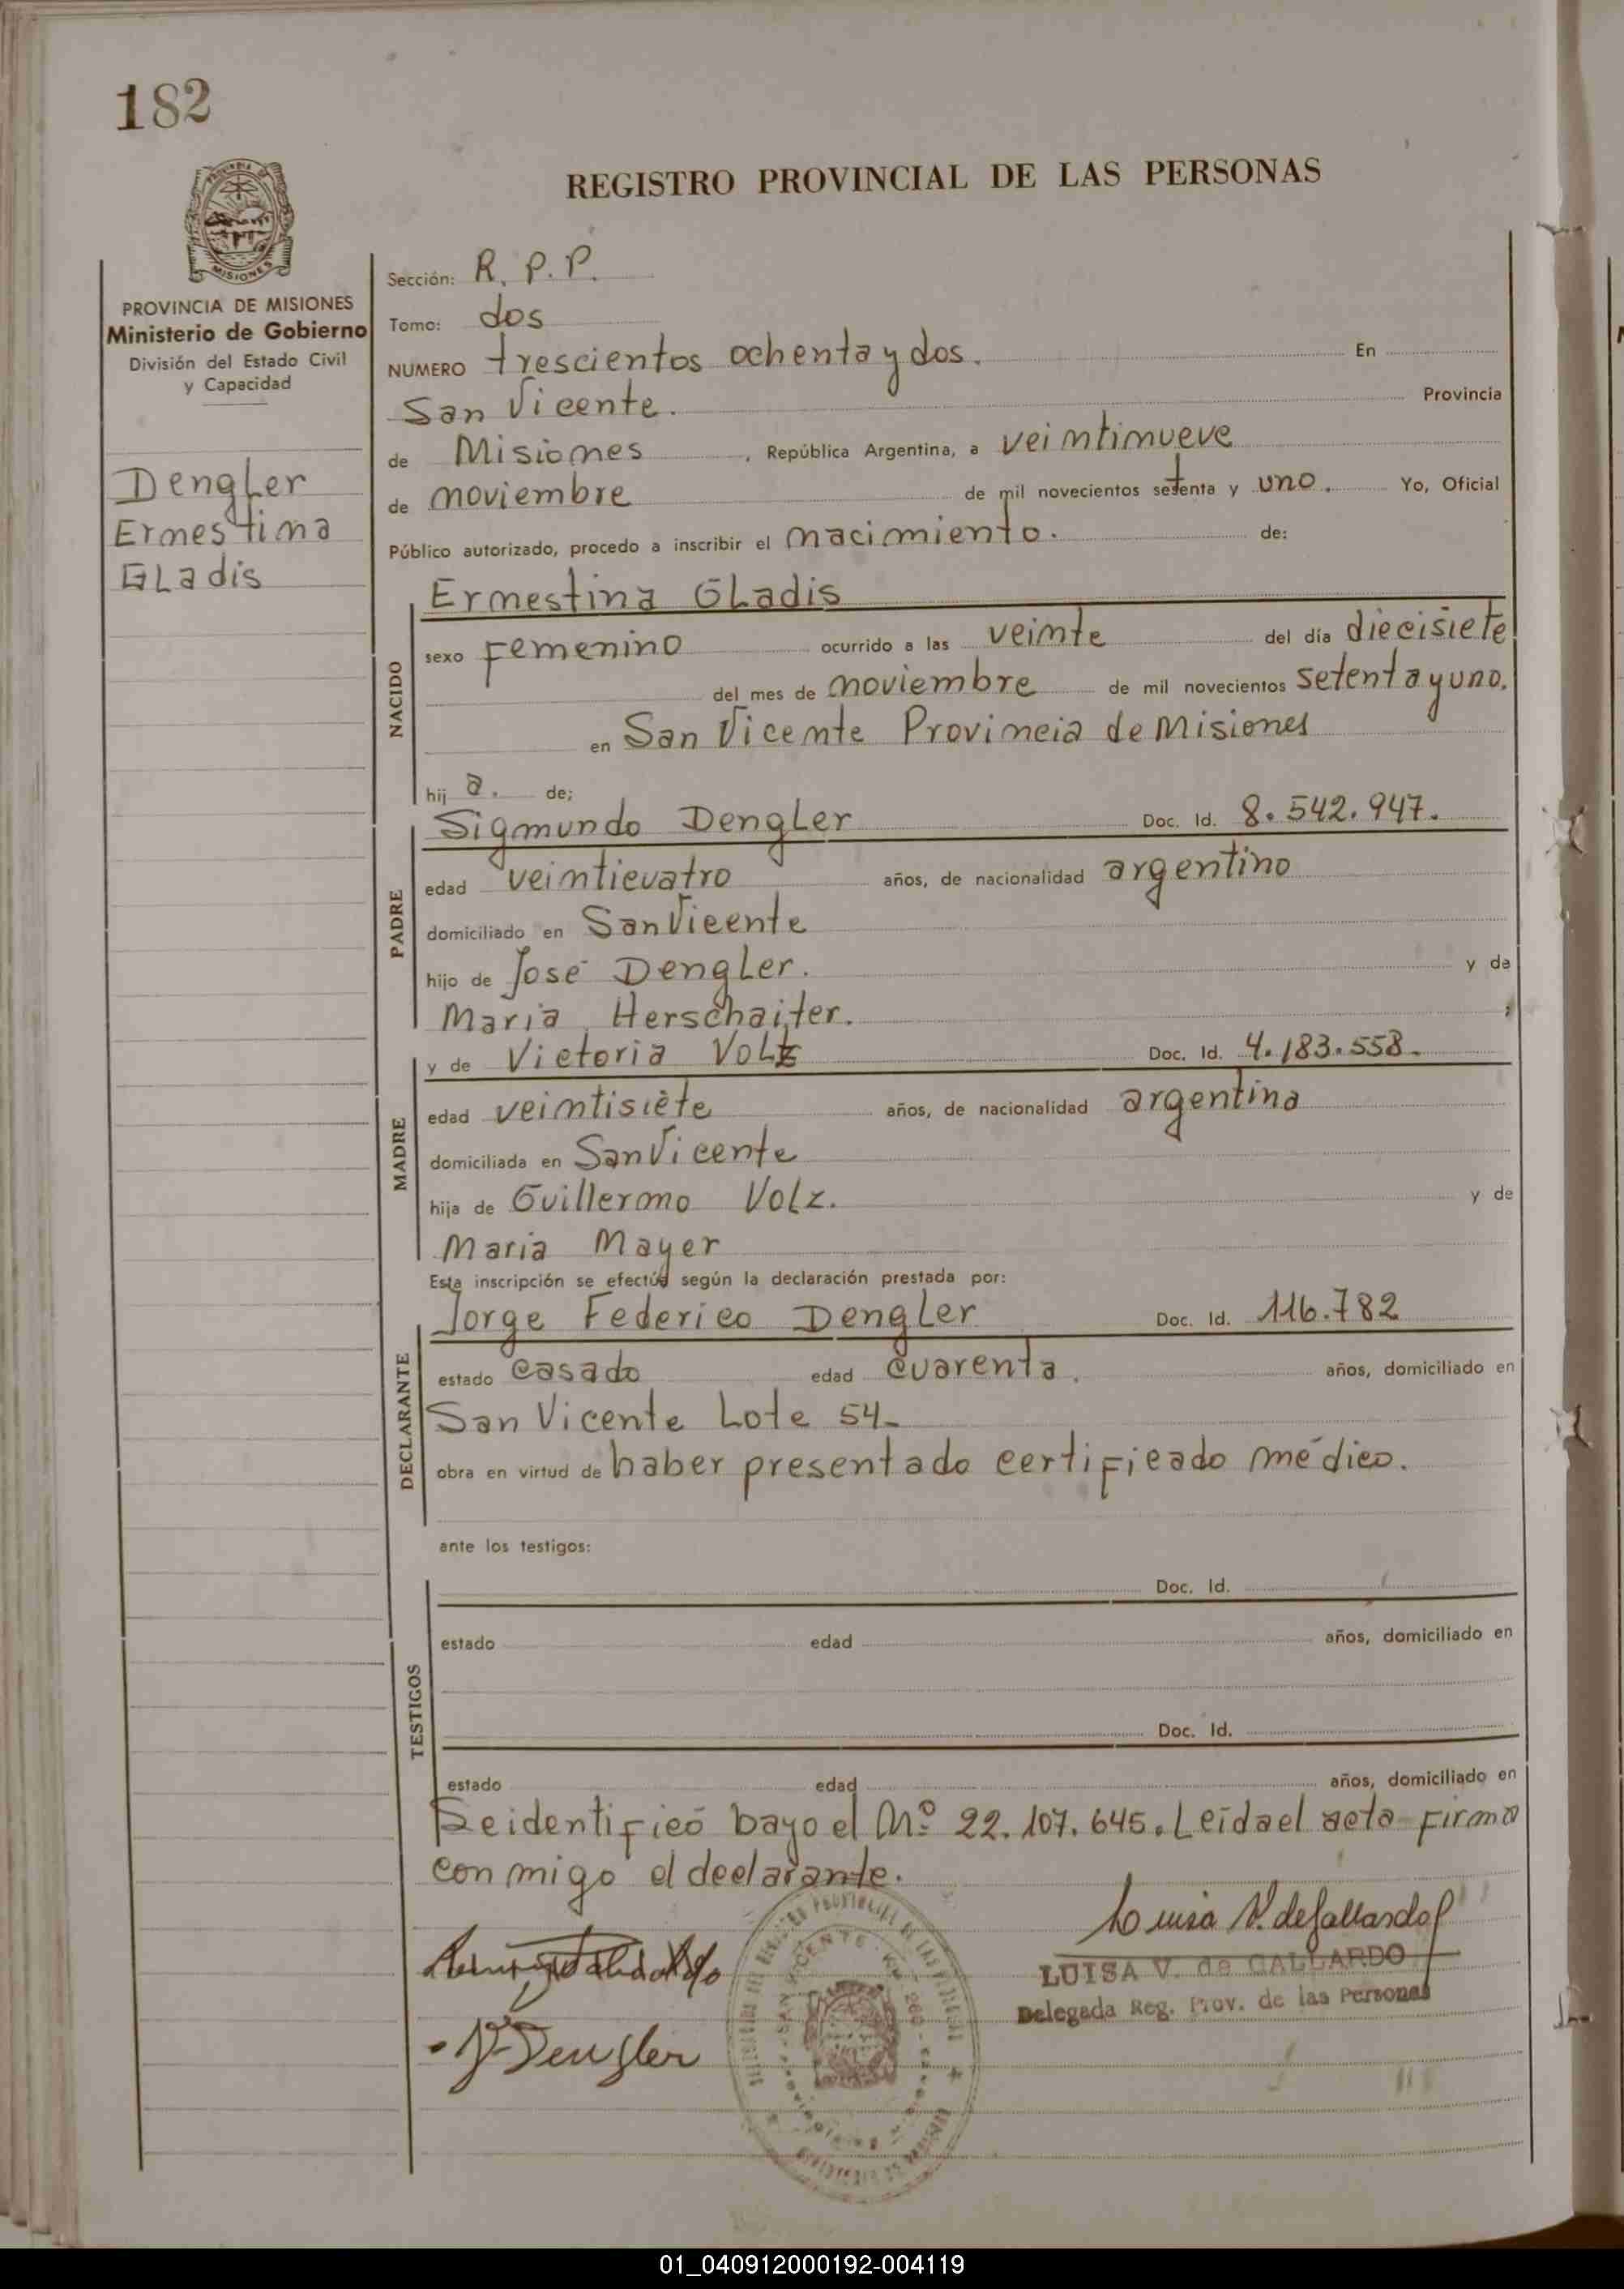 182
REGISTRO PROVINCIAL DE LAS PERSONAS
MISIONES
PROVINCIA DE MISIONES
Ministerio de Gobierno
División del Estado Civil
y Capacidad
Dengler
Ernestina
Gladis
Sección: R. P. P.
Tomo: dos
NUMERO trescientos ochenta y dos. En
San Vicente. Provincia
de Misiones, República Argentina, a veintinueve
de noviembre de mil novecientos setenta y uno. Yo, Oficial
Público autorizado, procedo a inscribir el nacimiento. de:
NACIDO
Ernestina Gladis
sexo femenino ocurrido a las veinte del día diecisiete
del mes de noviembre de mil novecientos setenta y uno.
en San Vicente Provincia de Misiones
hij a. de;
PADRE
Sigmundo Dengler Doc. Id. 8.542.947.
edad veinticuatro años, de nacionalidad argentino
domiciliado en San Vicente
hijo de José Dengler. y de
Maria Herschaiter.
MADRE
y de Victoria Volz Doc. Id. 4.183.558.
edad veintisiete años, de nacionalidad argentina
domiciliada en San Vicente
hija de Guillermo Volz. y de
Maria Mayer
Esta inscripción se efectúa según la declaración prestada por:
DECLARANTE
Jorge Federico Dengler Doc. Id. 116.782
estado casado edad cuarenta. años, domiciliado en
San Vicente Lote 54-
obra en virtud de haber presentado certificado médico.
ante los testigos:
TESTIGOS
Doc. Id.
estado edad años, domiciliado en
Doc. Id.
estado edad años, domiciliado en
Se identificó bayo el Nº 22.107.645. Leida el acta firma
con migo el declarante.
Luisa V. de Gallardo
LUISA V. de GALLARDO
Delegada Reg. Prov. de las Personas
Dengler
SAN VICENTE
01_040912000192-004119